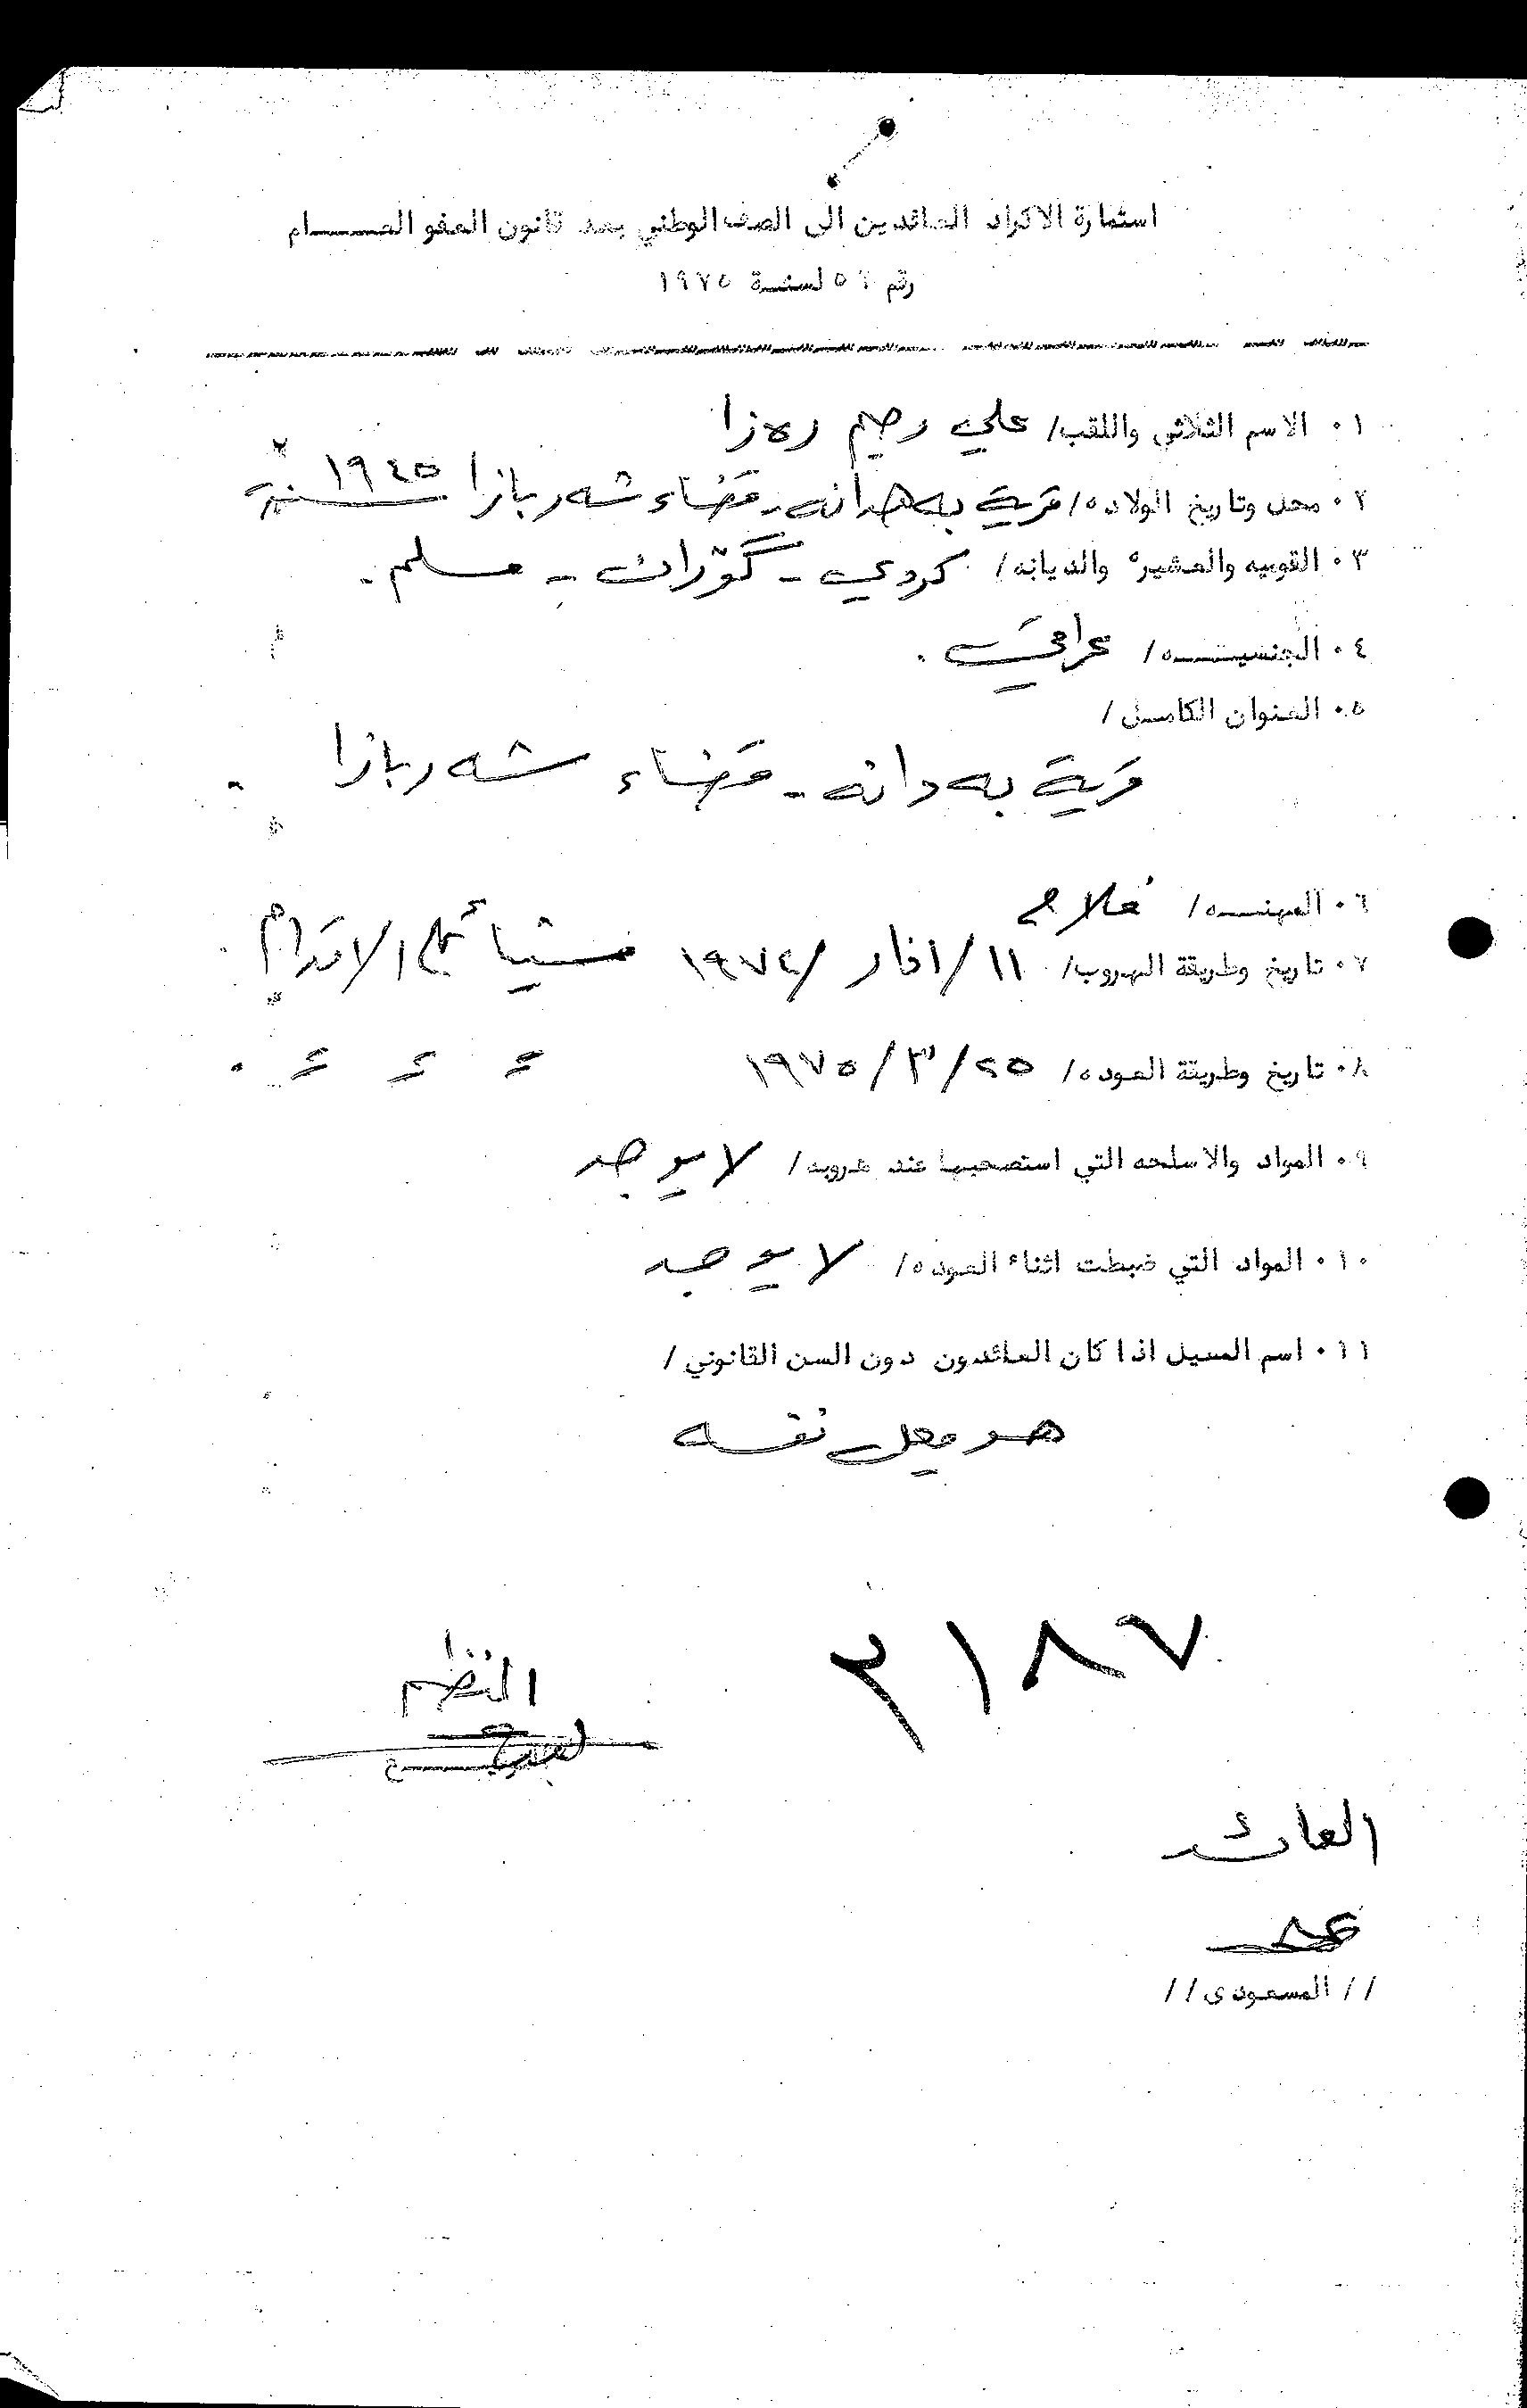 استمارة الاكراد العائدين الى الصف الوطني بعد قانون العفو العـــــام
رقم ٥٦ لسنة ١٩٧٥
١٠ الاسم الثلاثي واللقب/ علي رحيم ره زا
٢٠ محل وتاريخ الولاده/ قرية به هدانه - قضاء شه ربازا ١٩٤٥ سنة
٣٠ القوميه والعشيرة والديانه/ كردي - گۆران - مسلم .
٤٠ الجنسيــــه/ عراقي .
٥٠ العنوان الكامل/
قرية به دانه - قضاء شه ربازا .
٦٠ المهنـــه/ فلاح
٧٠ تاريخ وطريقة الهروب/ ١١/اذار/١٩٧٤ مشيا على الاقدام
٨٠ تاريخ وطريقة العوده/ ٢٥/٣/١٩٧٥ = = = .
٩٠ المواد والاسلحه التي استصحبها عند هروبه/ لا يوجد
١٠٠ المواد التي ضبطت اثناء العوده/ لا يوجد
١١٠ اسم المعيل اذا كان العائدون دون السن القانوني/
هو معيل نفسه
٢١٨٧
المنظم
العائد
// المسعودى //